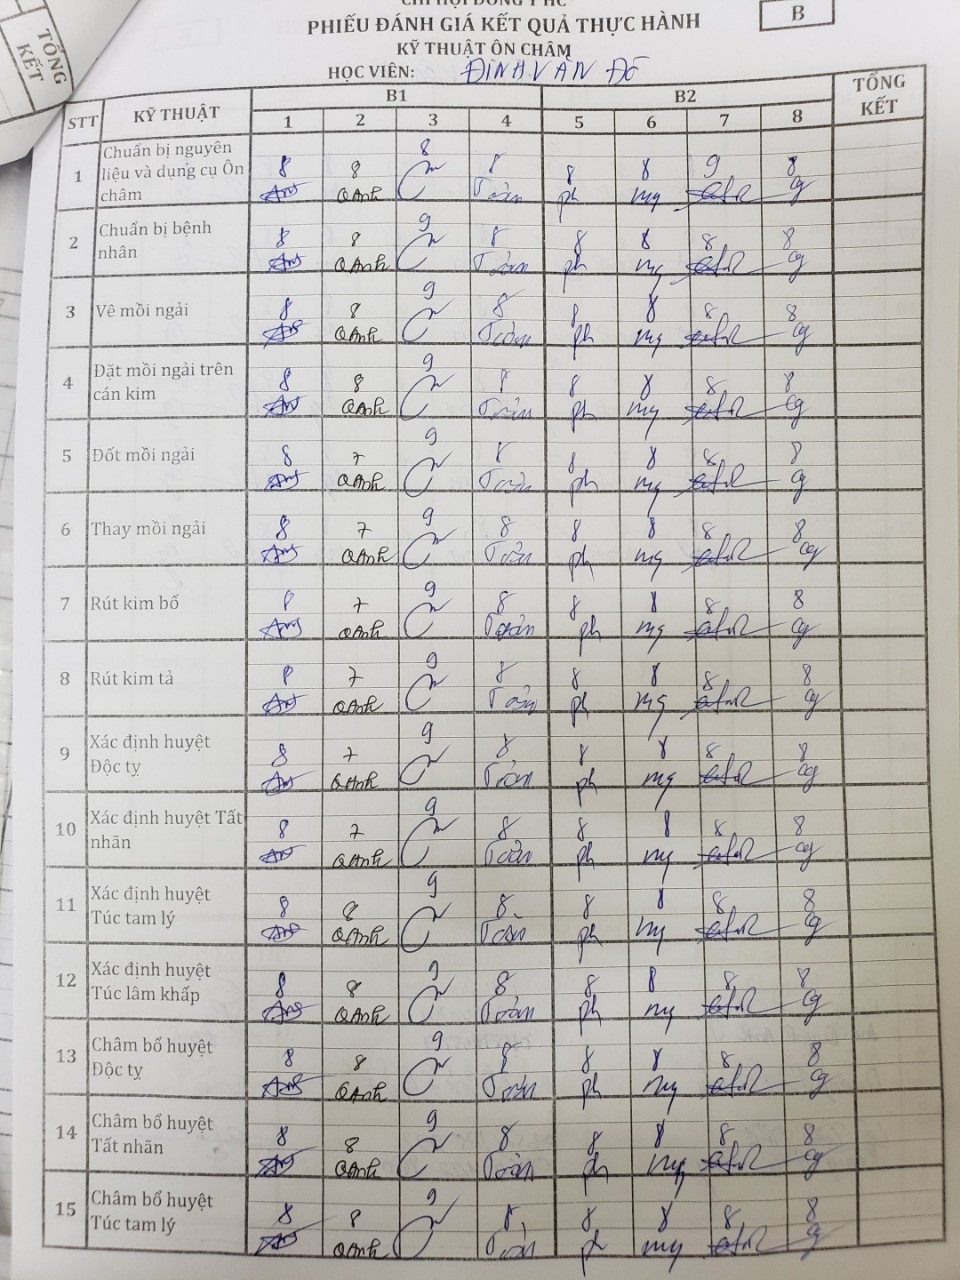 CHI HỘI ĐÔNG Y HC
PHIẾU ĐÁNH GIÁ KẾT QUẢ THỰC HÀNH
B
KỸ THUẬT ÔN CHÂM
HỌC VIÊN: ĐINH VĂN ĐÔ
TỔNG KẾT
STT KỸ THUẬT B1 B2 TỔNG KẾT
1 2 3 4 5 6 7 8
1 Chuẩn bị nguyên liệu và dụng cụ Ôn châm 8 8 8 8 8 8 9 8
QAnh Toản ph mg
2 Chuẩn bị bệnh nhân 8 8 9 8 8 8 8 8
QAnh Toản ph mg
3 Vê mồi ngải 8 8 9 8 8 8 8 8
QAnh Toản ph mg
4 Đặt mồi ngải trên cán kim 8 8 9 8 8 8 8 8
QAnh Toản ph mg
5 Đốt mồi ngải 8 7 9 8 8 8 8 8
QAnh Toản ph mg
6 Thay mồi ngải 8 7 9 8 8 8 8 8
QAnh Toản ph mg
7 Rút kim bổ 8 7 9 8 8 8 8 8
QAnh Toản ph mg
8 Rút kim tả 8 7 9 8 8 8 8 8
QAnh Toản ph mg
9 Xác định huyệt Độc tỵ 8 7 9 8 8 8 8 8
QAnh Toản ph mg
10 Xác định huyệt Tất nhãn 8 7 9 8 8 8 8 8
QAnh Toản ph mg
11 Xác định huyệt Túc tam lý 8 8 9 8 8 8 8 8
QAnh Toản ph mg
12 Xác định huyệt Túc lâm khấp 8 8 9 8 8 8 8 8
QAnh Toản ph mg
13 Châm bổ huyệt Độc tỵ 8 8 9 8 8 8 8 8
QAnh Toản ph mg
14 Châm bổ huyệt Tất nhãn 8 8 9 8 8 8 8 8
QAnh Toản ph mg
15 Châm bổ huyệt Túc tam lý 8 8 9 8 8 8 8 8
QAnh Toản ph mg